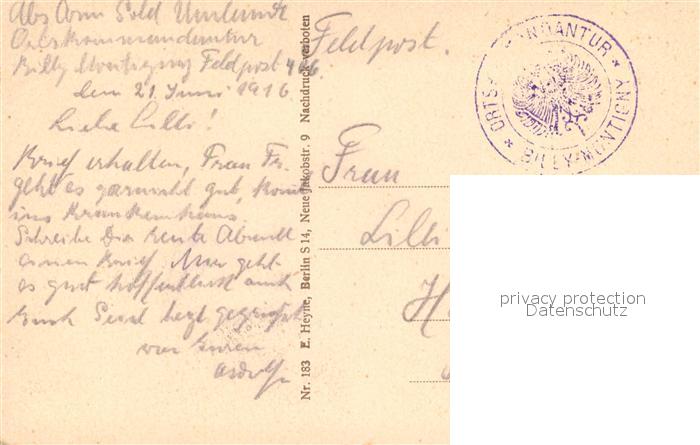 Abs Arm Sold
Ortskommandantur
Billy Montigny Feldpost 406
den 21 Juni 1916
Liebe Lilli!
Brief erhalten, Frau Fr.
geht es garnicht gut,
ins Krankenhaus.
Schreibe Dir heute Abend
einen Brief. Mir geht
es gut hoffentlich auch
Euch Seid herzl gegrüßt
von Eurem
Adolf
Nr. 183 E. Heyne, Berlin S 14, Neue Jakobstr. 9 Nachdruck verboten
Feldpost.
Frau
Lilli
ORTSKOMMANDANTUR * BILLY-MONTIGNY *
privacy protection
Datenschutz